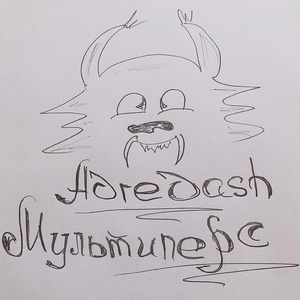 AdreDash
Мультиперс